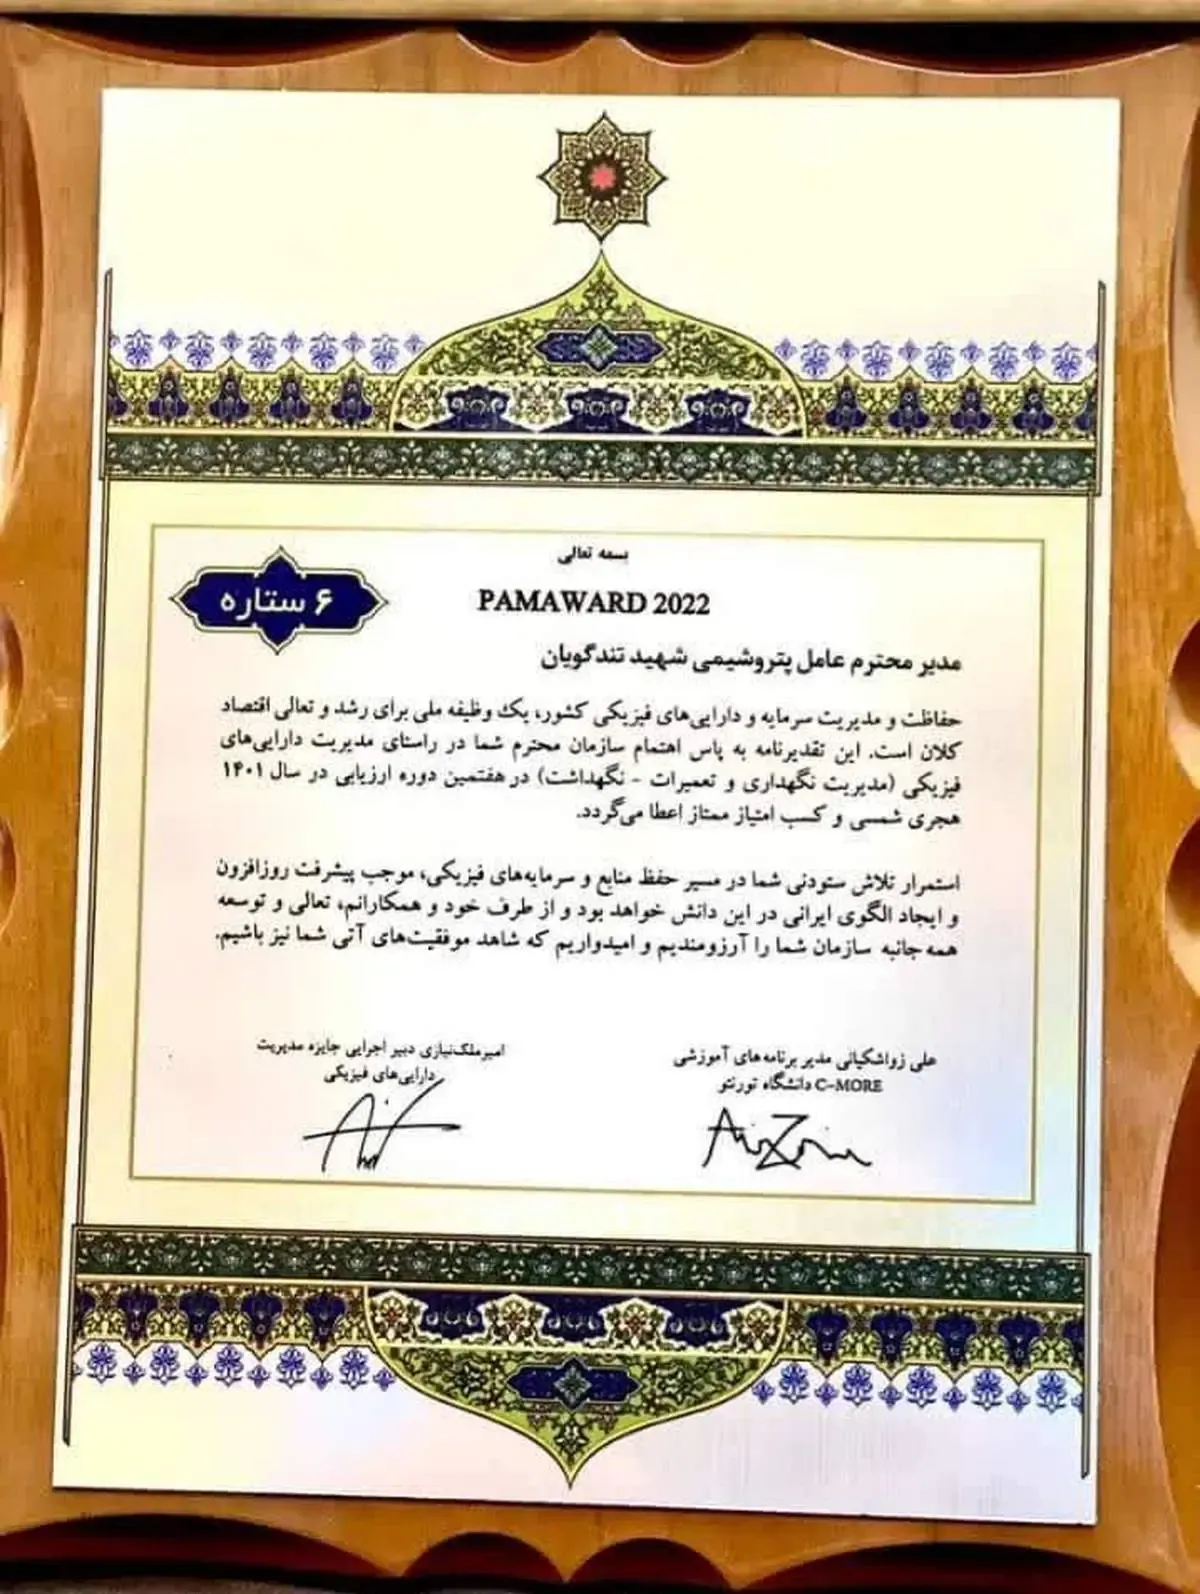 بسمه تعالی
PAMAWARD 2022
۶ ستاره
مدیر محترم عامل پتروشیمی شهید تندگویان
حفاظت و مدیریت سرمایه و دارایی‌های فیزیکی کشور، یک وظیفه ملی برای رشد و تعالی اقتصاد
کلان است. این تقدیرنامه به پاس اهتمام سازمان محترم شما در راستای مدیریت دارایی‌های
فیزیکی (مدیریت نگهداری و تعمیرات - نگهداشت) در هفتمین دوره ارزیابی در سال ۱۴۰۱
هجری شمسی و کسب امتیاز ممتاز اعطا می‌گردد.
استمرار تلاش ستودنی شما در مسیر حفظ منابع و سرمایه‌های فیزیکی، موجب پیشرفت روزافزون
و ایجاد الگوی ایرانی در این دانش خواهد بود و از طرف خود و همکارانم، تعالی و توسعه
همه جانبه سازمان شما را آرزومندیم و امیدواریم که شاهد موفقیت‌های آتی شما نیز باشیم.
علی زواشکیانی مدیر برنامه‌های آموزشی
C-MORE دانشگاه تورنتو
امیرملک‌نیازی دبیر اجرایی جایزه مدیریت
دارایی‌های فیزیکی